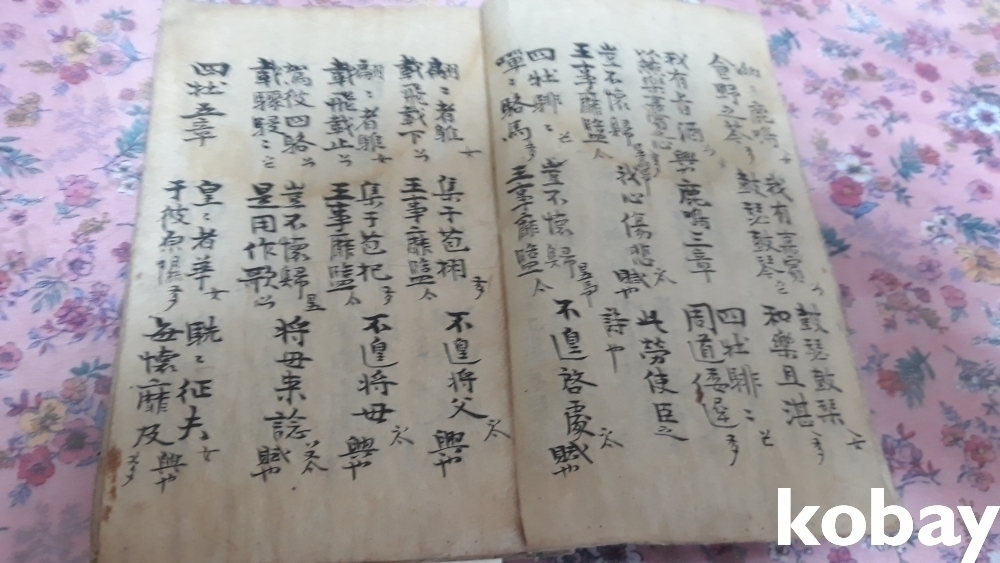 呦〻鹿鳴 我有嘉賓 鼓瑟鼓琴
食野之芩 鼓瑟鼓琴 和樂且湛
我有旨酒 興 鹿鳴三章 四牡騑〻
燕樂嘉賓心 周道倭遲
豈不懷歸 我心傷悲 賦也 此勞使臣之
王事靡盬 詩也
四牡騑〻 豈不懷歸
嘽〻駱馬 王事靡盬 不遑啓處 賦也
翩〻者鵻 集于苞栩 不遑將父 興也
載飛載下 王事靡盬
翩〻者鵻 集于苞杞 不遑將母 興也
載飛載止 王事靡盬
駕彼四駱 豈不懷歸 將母来諗 賦也
載驟駸〻 是用作歌
四牡五章 皇〻者華 駪〻征夫
于彼原隰 每懷靡及 興也
kobay